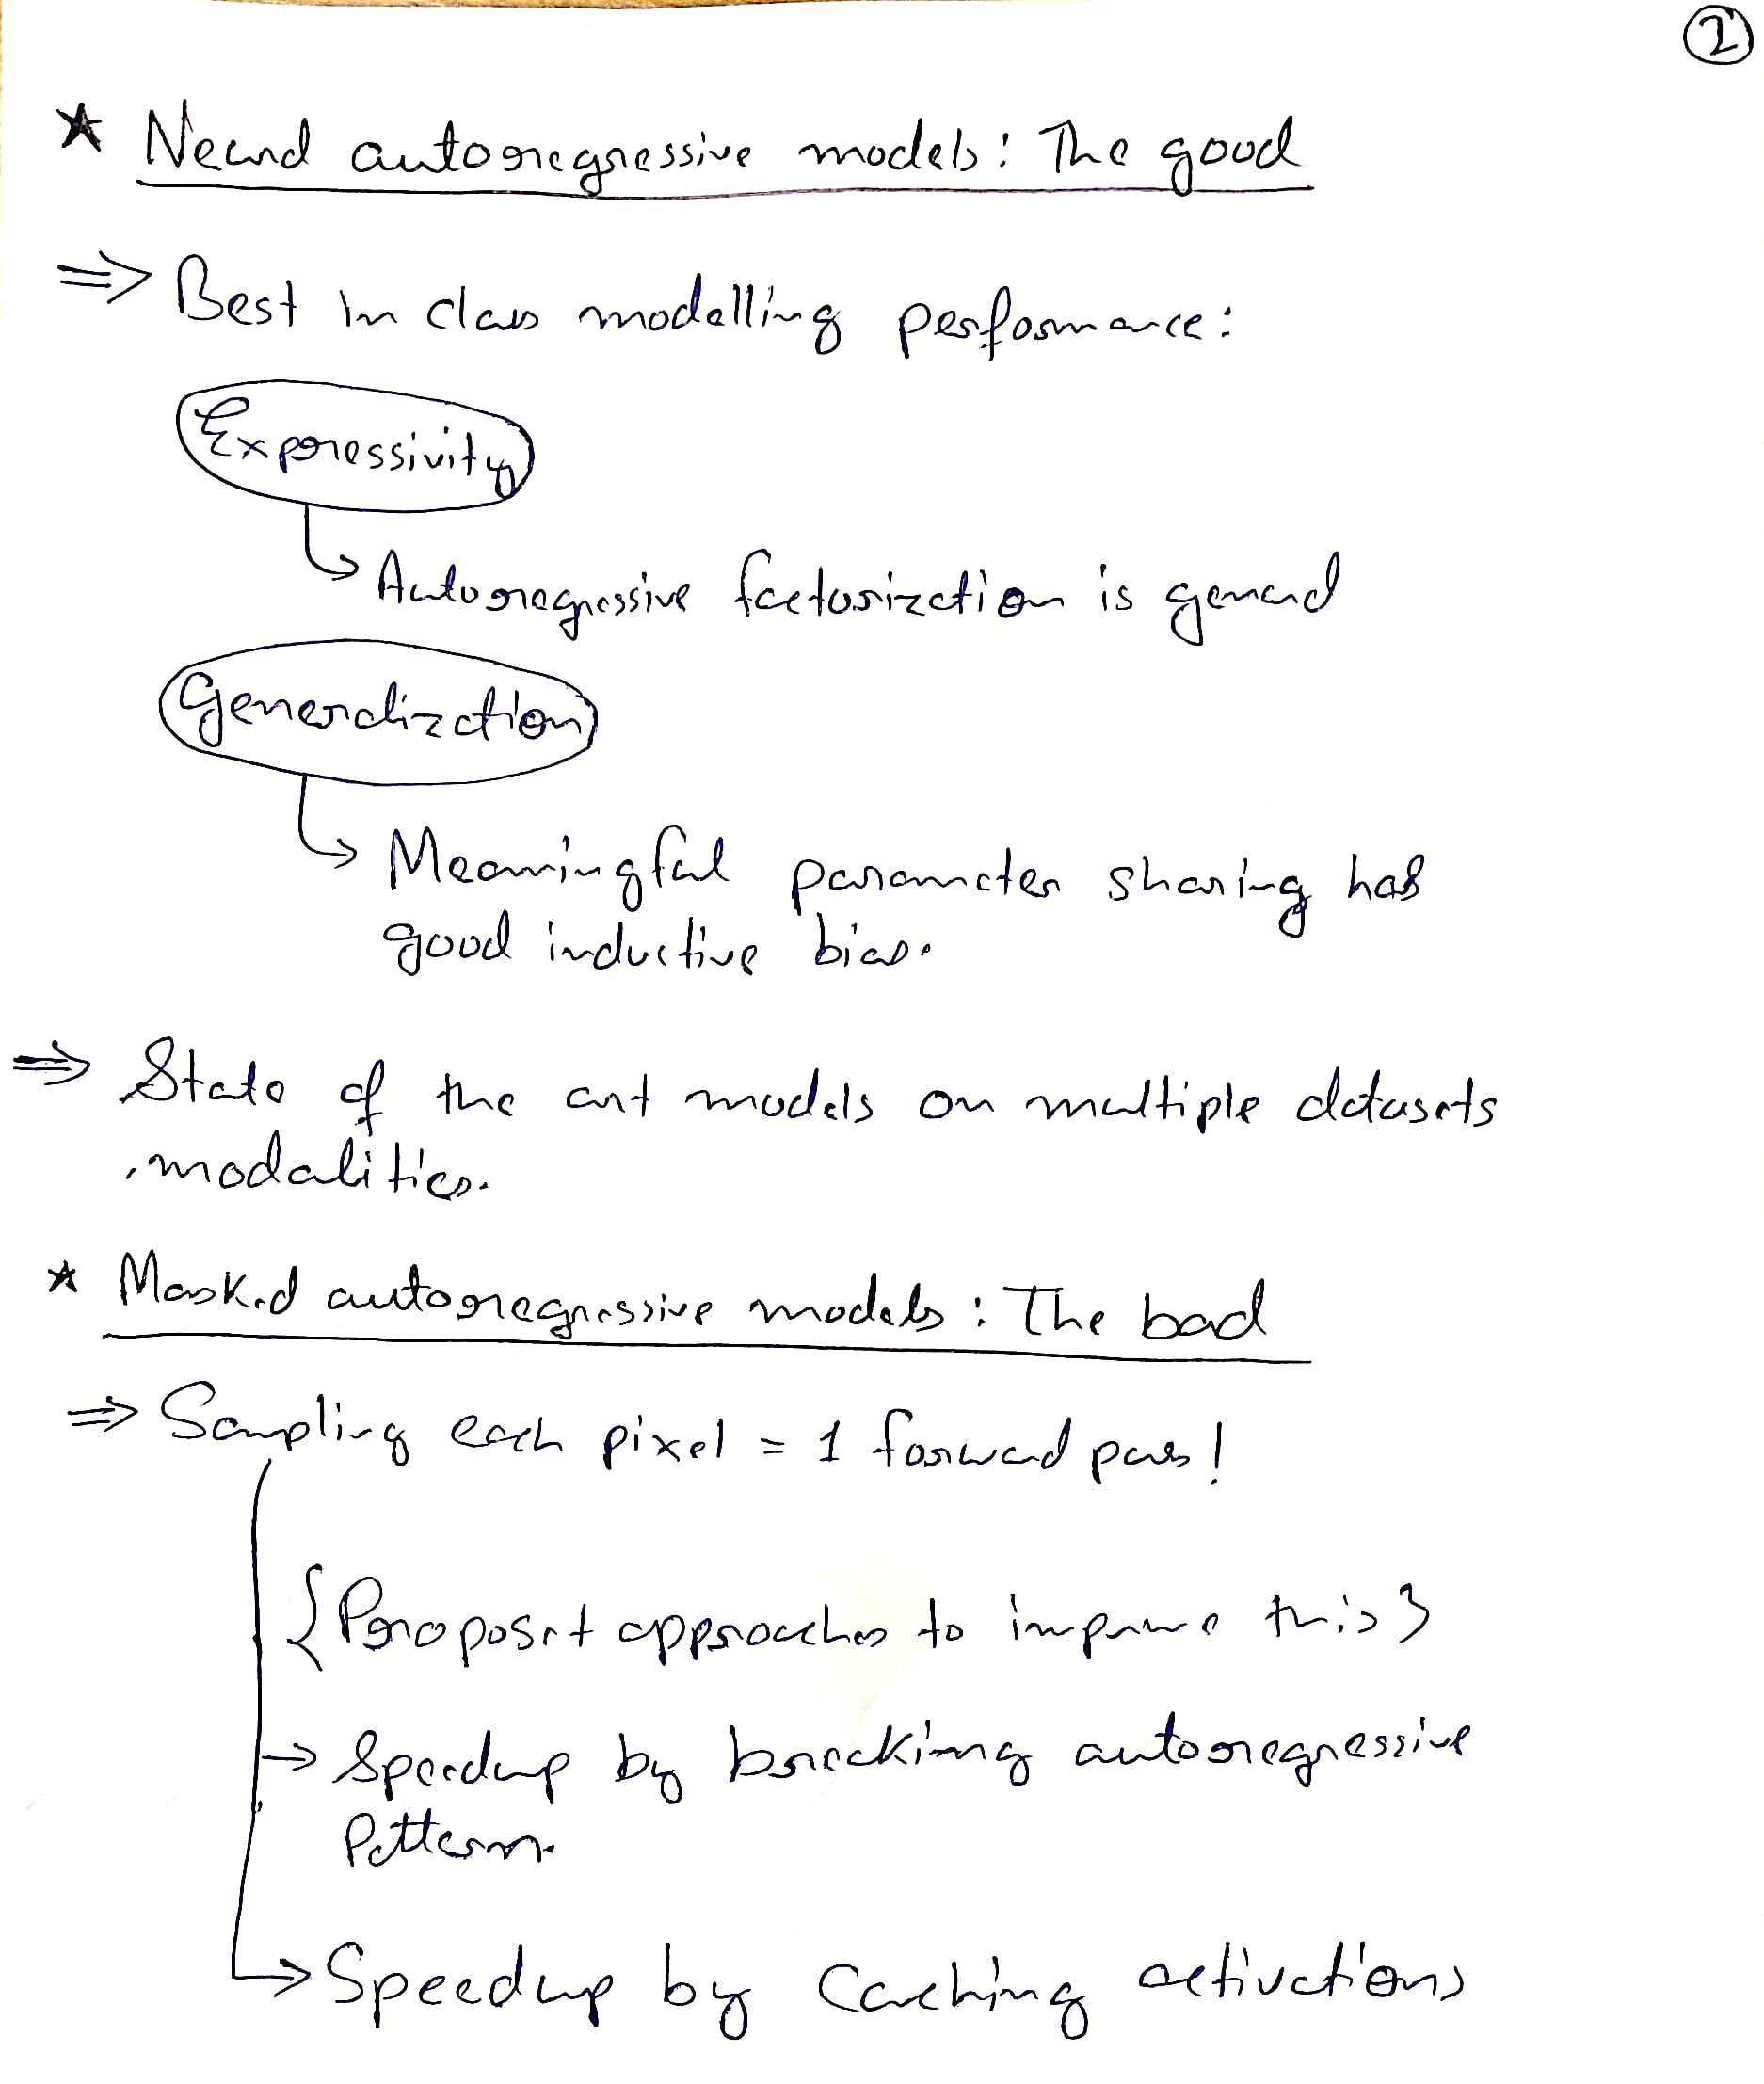 ②
★ Neural autoregressive models: The good
⇒ Best in class modelling performance:
Expressivity
↳ Autoregressive factorization is general
Generalization
↳ Meaningful parameter sharing has
good inductive bias.
⇒ State of the art models on multiple datasets
, modalities.
★ Masked autoregressive models: The bad
⇒ Sampling each pixel = 1 forward pass!
{Proposet approaches to improve this}
→ Speedup by breaking autoregressive
Pattern.
↳ Speedup by Caching activations